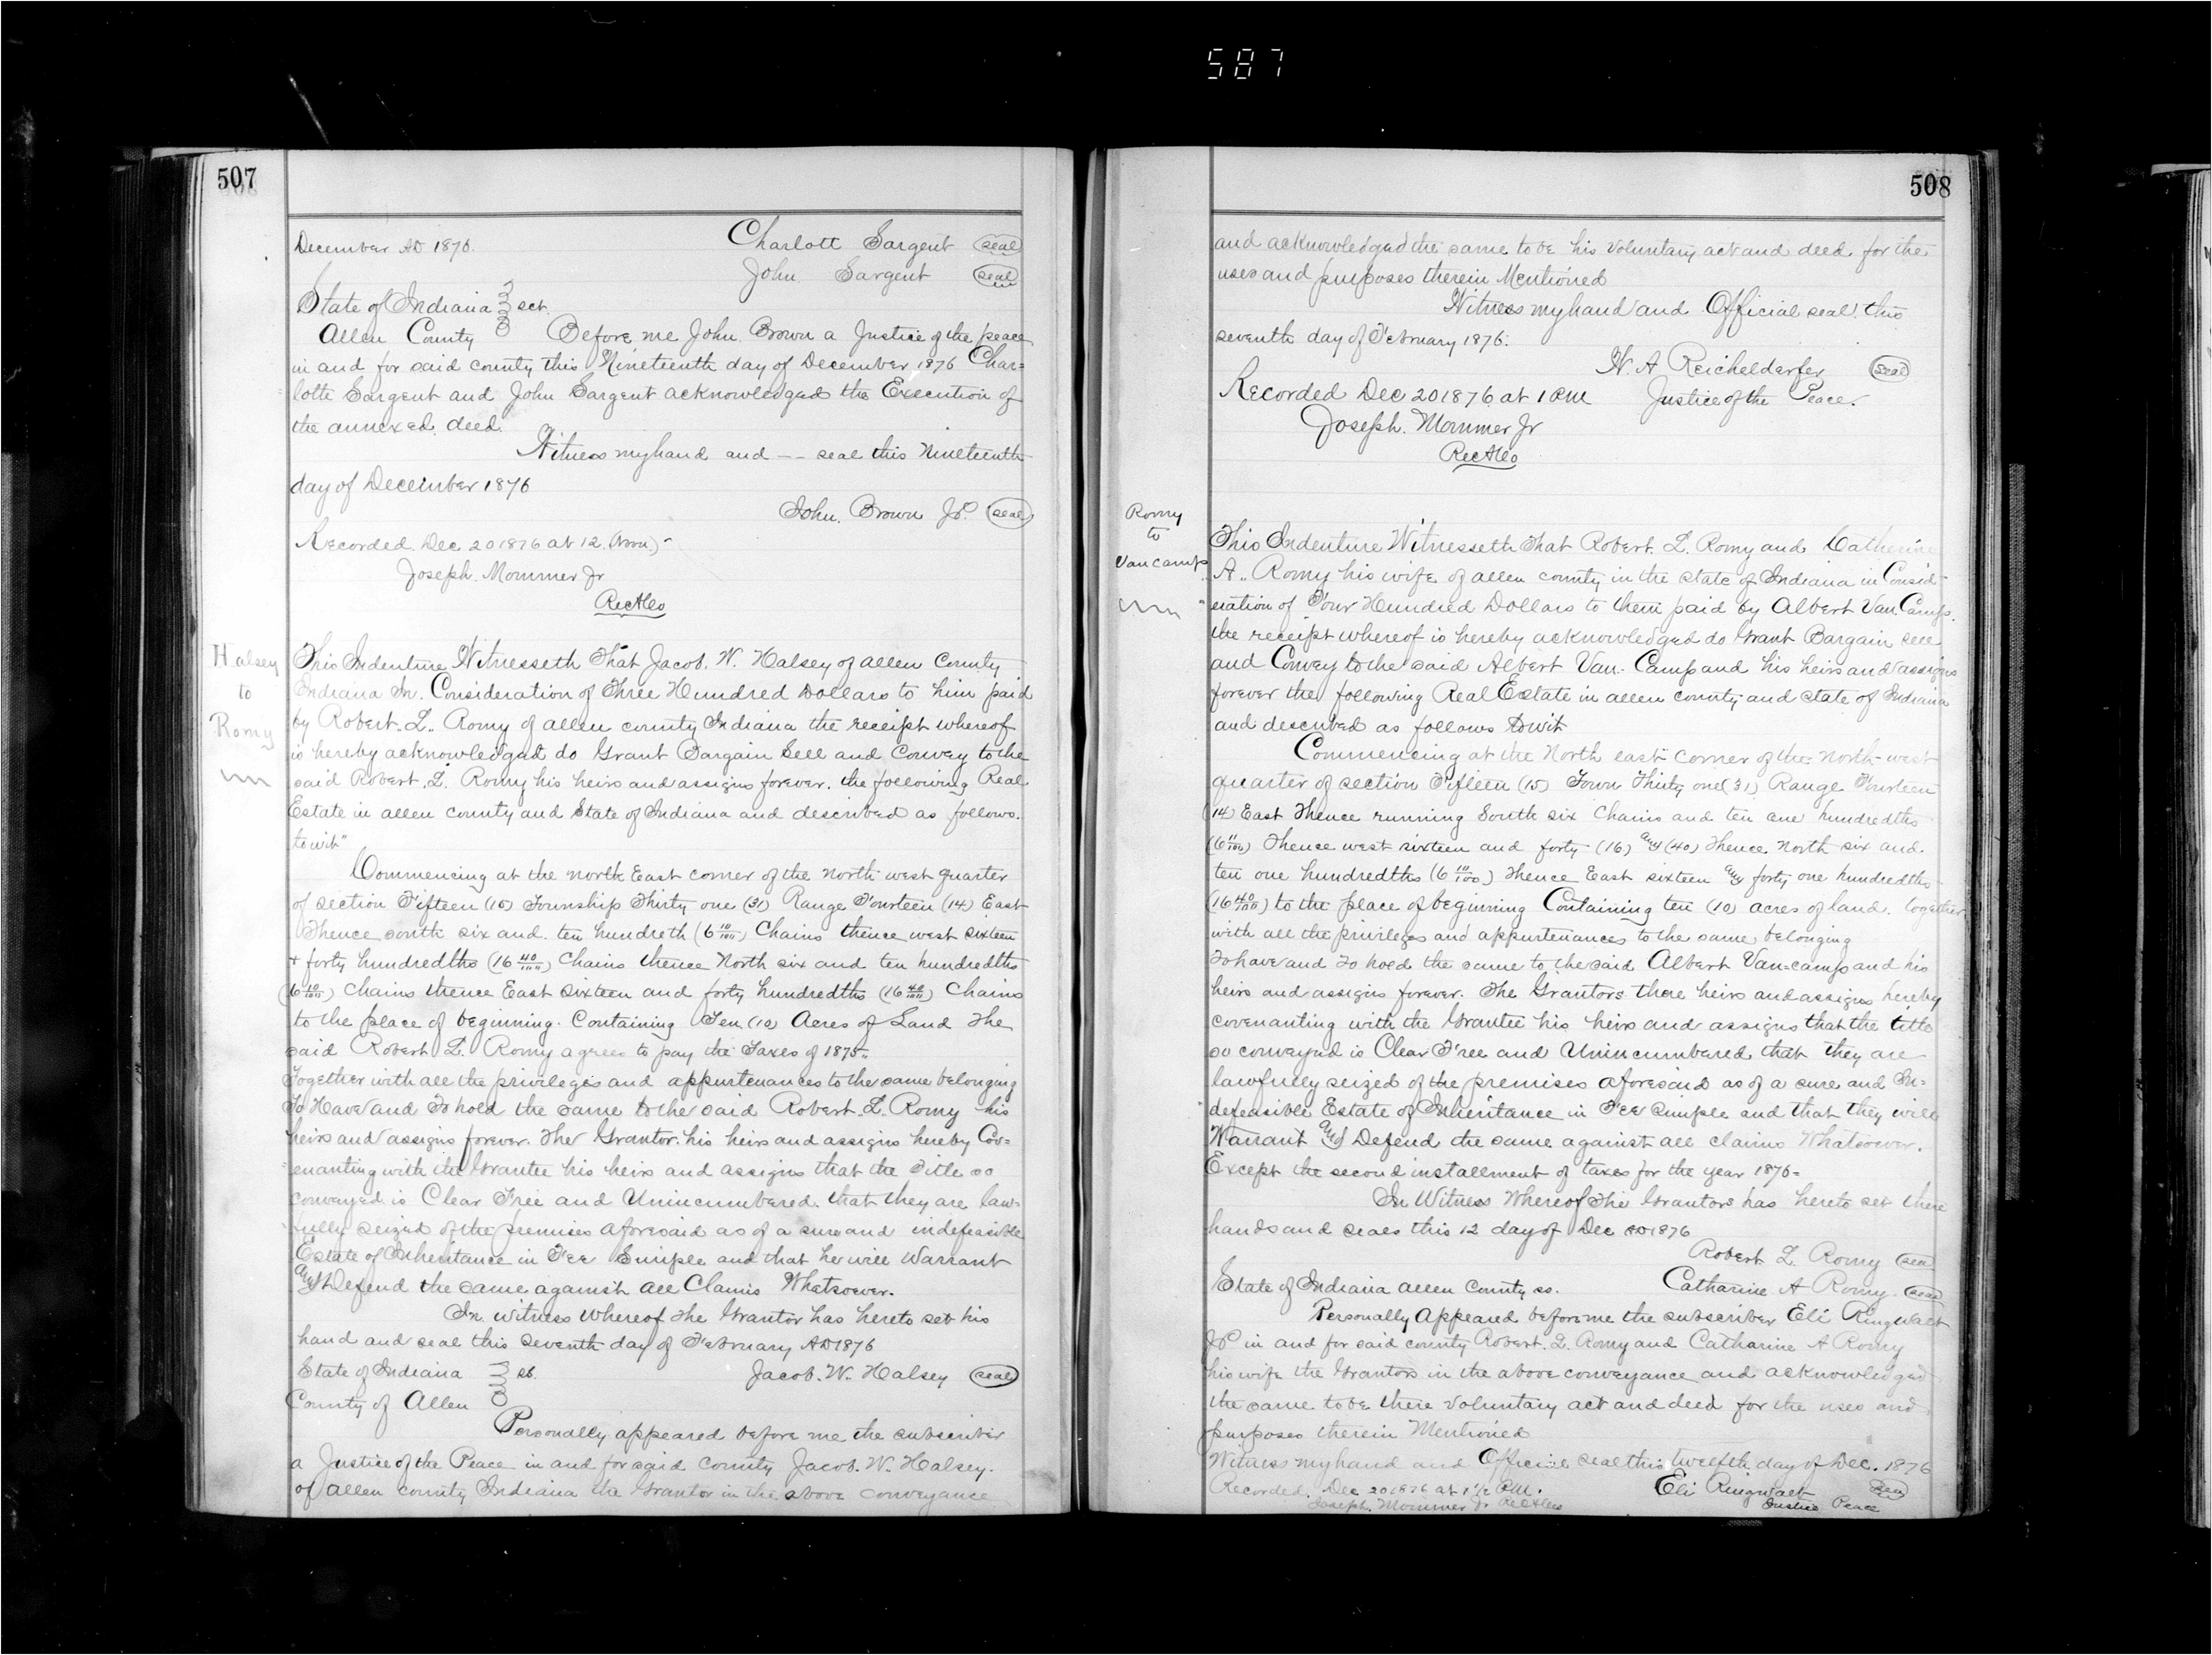 587
507
December AD 1876.
Charlott Sargent (seal)
John Sargent (seal)
State of Indiana } sct.
Allen County } Before me John Brown a Justice of the peace
in and for said county this Nineteenth day of December 1876 Char=
lotte Sargent and John Sargent acknowledged the Execution of
the annexed deed.
Witness my hand and -- seal this Nineteenth
day of December 1876
John. Brown JP. (seal)
Recorded. Dec 20 1876 at 12. (Noon)
Joseph. Mommer Jr
RecAlCo
Halsey
to
Romy
This Indenture Witnesseth That Jacob. W. Halsey of allen County
Indiana In. Consideration of Three Hundred Dollars to him paid
by Robert. L. Romy of allen county Indiana the receipt whereof
is hereby acknowledged do Grant Bargain Sell and Convey to the
said Robert. L. Romy his heirs and assigns forever. the following Real
Estate in allen county and State of Indiana and described as follows.
to wit"
Commencing at the north East corner of the North west quarter
of section Fifteen (15) Township Thirty one (31) Range Fourteen (14) East
Thence south six and ten hundreth (6 10/100) Chains thence west sixteen
+ forty hundredths (16 40/100) Chains thence North six and ten hundredths
(6 10/100) Chains thence East sixteen and forty hundredths (16 40/100) Chains
to the place of beginning. Containing Ten (10) Acres of Land The
said Robert L. Romy agrees to pay the Taxes of 1875.
Together with all the privileges and appurtenances to the same belonging
To Have and To hold the same to the said Robert. L. Romy his
heirs and assigns forever. The Grantor. his heirs and assigns hereby Cov=
enanting with the Grantee his heirs and assigns that the Title so
conveyed is Clear Free and Unincumbered. that they are law=
fully seized of the premises aforesaid as of a sure and indefeasible
Estate of Inheritance in Fee Simple and that he will Warrant
and Defend the same against all Claims Whatsoever.
In witness whereof The Grantor has hereto set his
hand and seal this Seventh day of February AD 1876
State of Indiana } ss. Jacob. W. Halsey (seal)
County of Allen }
Personally appeared before me the subscriber
a Justice of the Peace in and for said County Jacob. W. Halsey.
of allen county Indiana the Grantor in the above conveyance
508
and acknowledged the same to be his Voluntary act and deed for the
uses and purposes therein Mentioned
Witness my hand and Official seal. this
seventh day of February 1876.
W. A Reicheldarfer (seal)
Recorded Dec 20 1876 at 1 PM Justice of the Peace.
Joseph. Mommer Jr
RecAlCo
Romy
to
Vancamp
This Indenture Witnesseth That Robert. L. Romy and Catherine
A.. Romy his wife of allen county in the state of Indiana in Consid-
eration of Four Hundred Dollars to them paid by Albert Van. Camp.
the receipt whereof is hereby acknowledged do Grant Bargain sell
and Convey to the said Albert Van. Camp and his heirs and assigns
forever the following Real Estate in allen county and state of Indiana
and described as follows towit
Commencing at the North east corner of the North west
quarter of section Fifteen (15) Town Thirty one (31) Range Fourteen
(14) East Thence running South six Chains and ten one hundredths
(6 11/100) Thence west sixteen and forty (16) and (40) Thence North six and.
ten one hundredths (6 10/100) Thence East sixteen and forty one hundredths
(16 40/100) to the place of beginning Containing ten (10) acres of land. together
with all the privileges and appurtenances to the same belonging
To have and To hold the same to the said Albert Van=camp and his
heirs and assigns forever. The Grantors there heirs and assigns hereby
covenanting with the Grantee his heirs and assigns that the title
so conveyed is Clear Free and Unincumbered that they are
lawfully seized of the premises aforesaid as of a sure and In=
defeasible Estate of Inheritance in Fee Simple and that they will
Warrant and Defend the same against all claims Whatsoever.
Except the second installment of taxes for the year 1876=
In Witness Whereof The Grantors has hereto set there
hands and seals this 12 day of Dec AD 1876
Robert L Romy (seal)
State of Indiana allen County ss. Catharine A Romy (seal)
Personally Appeared before me the subscriber Eli Ringwalt
JP in and for said county Robert. L. Romy and Catharine A Romy
his wife the Grantors in the above conveyance and acknowledged
the same to be there Voluntary act and deed for the uses and
purposes therein Mentioned
Witness my hand and Official seal this twelfth day of Dec. 1876
Recorded. Dec 20 1876 at 1 1/2 PM. Eli Ringwalt (seal)
Joseph. Mommer Jr RecAlCo Justice Peace